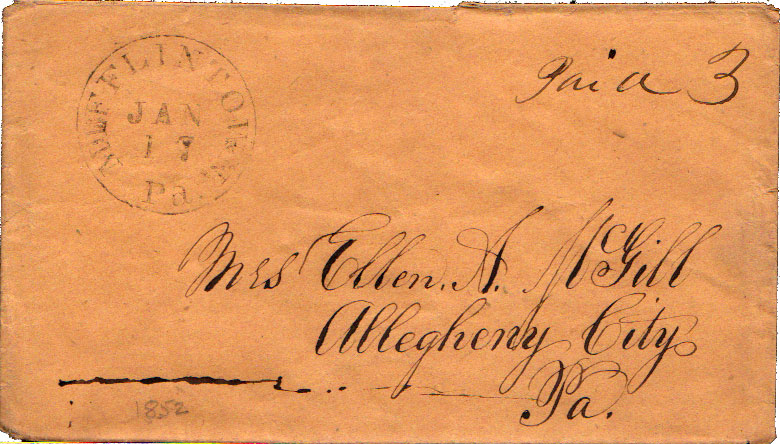 MIFFLINTOWN
JAN
17
Pa.
Paid 3
Mrs Ellen. A. McGill
Allegheny City
Pa.
1852